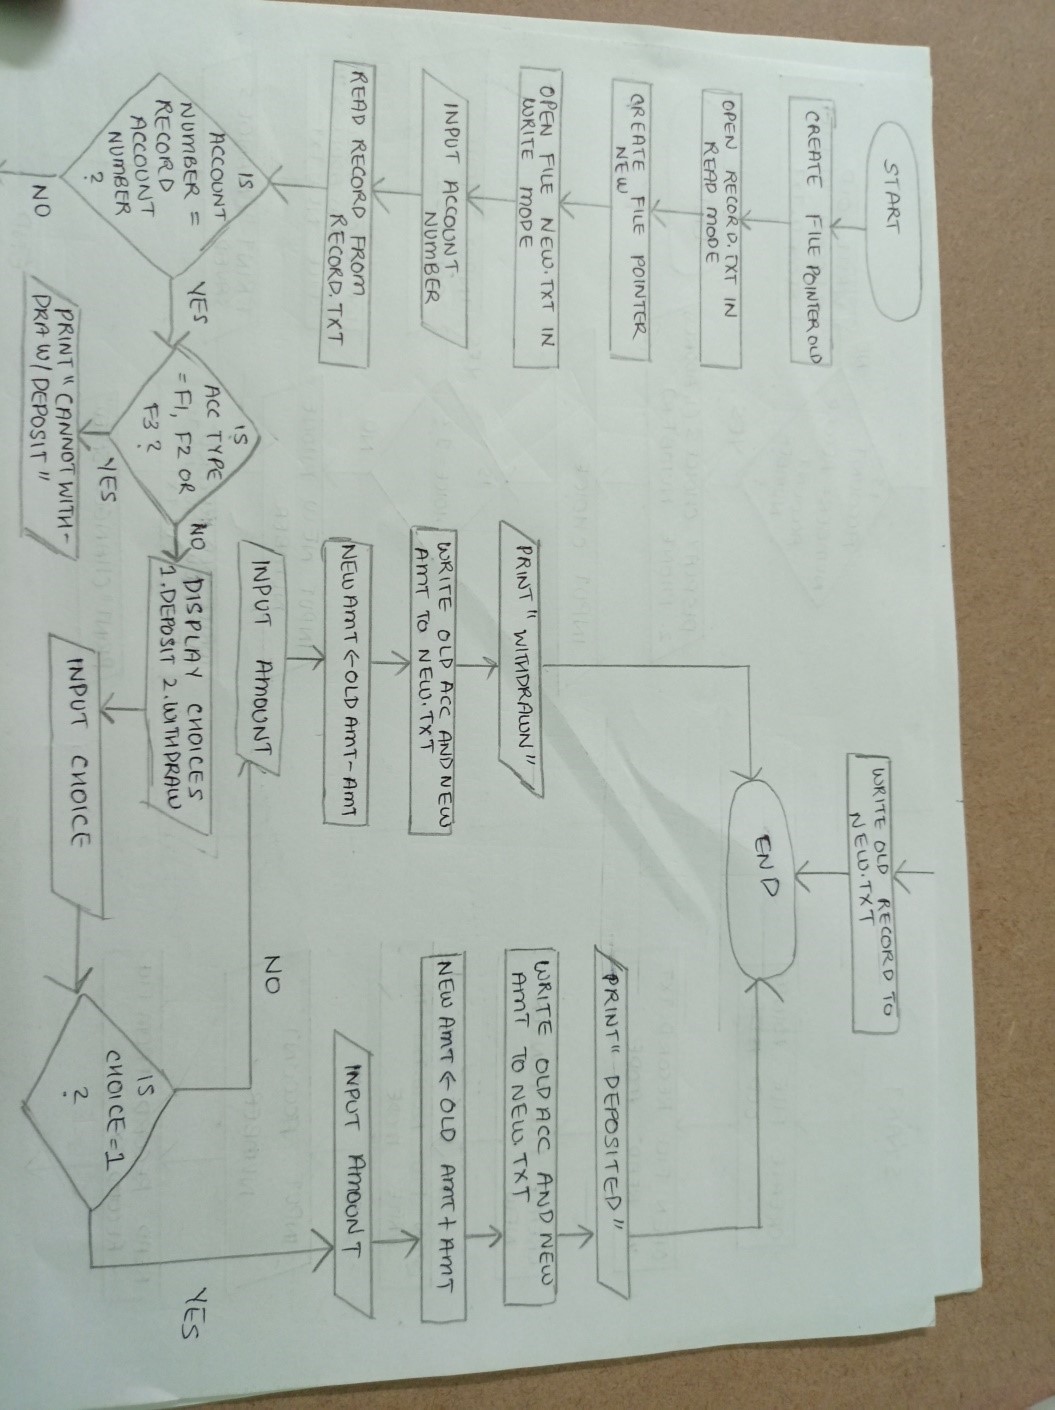 START
CREATE FILE POINTER OLD
OPEN RECORD.TXT IN
READ MODE
CREATE FILE POINTER
NEW
OPEN FILE NEW.TXT IN
WRITE MODE
INPUT ACCOUNT
NUMBER
READ RECORD FROM
RECORD.TXT
IS
ACCOUNT
NUMBER =
RECORD
ACCOUNT
NUMBER
?
YES
NO
IS
ACC TYPE
= F1, F2 OR
F3 ?
YES
PRINT "CANNOT WITH-
DRAW/DEPOSIT"
NO
DISPLAY CHOICES
1. DEPOSIT 2. WITHDRAW
INPUT CHOICE
IS
CHOICE=1
?
NO
INPUT AMOUNT
NEW AMT ← OLD AMT - AMT
WRITE OLD ACC AND NEW
AMT TO NEW.TXT
PRINT "WITHDRAWN"
YES
INPUT AMOUNT
NEW AMT ← OLD AMT + AMT
WRITE OLD ACC AND NEW
AMT TO NEW.TXT
PRINT "DEPOSITED"
WRITE OLD RECORD TO
NEW.TXT
END